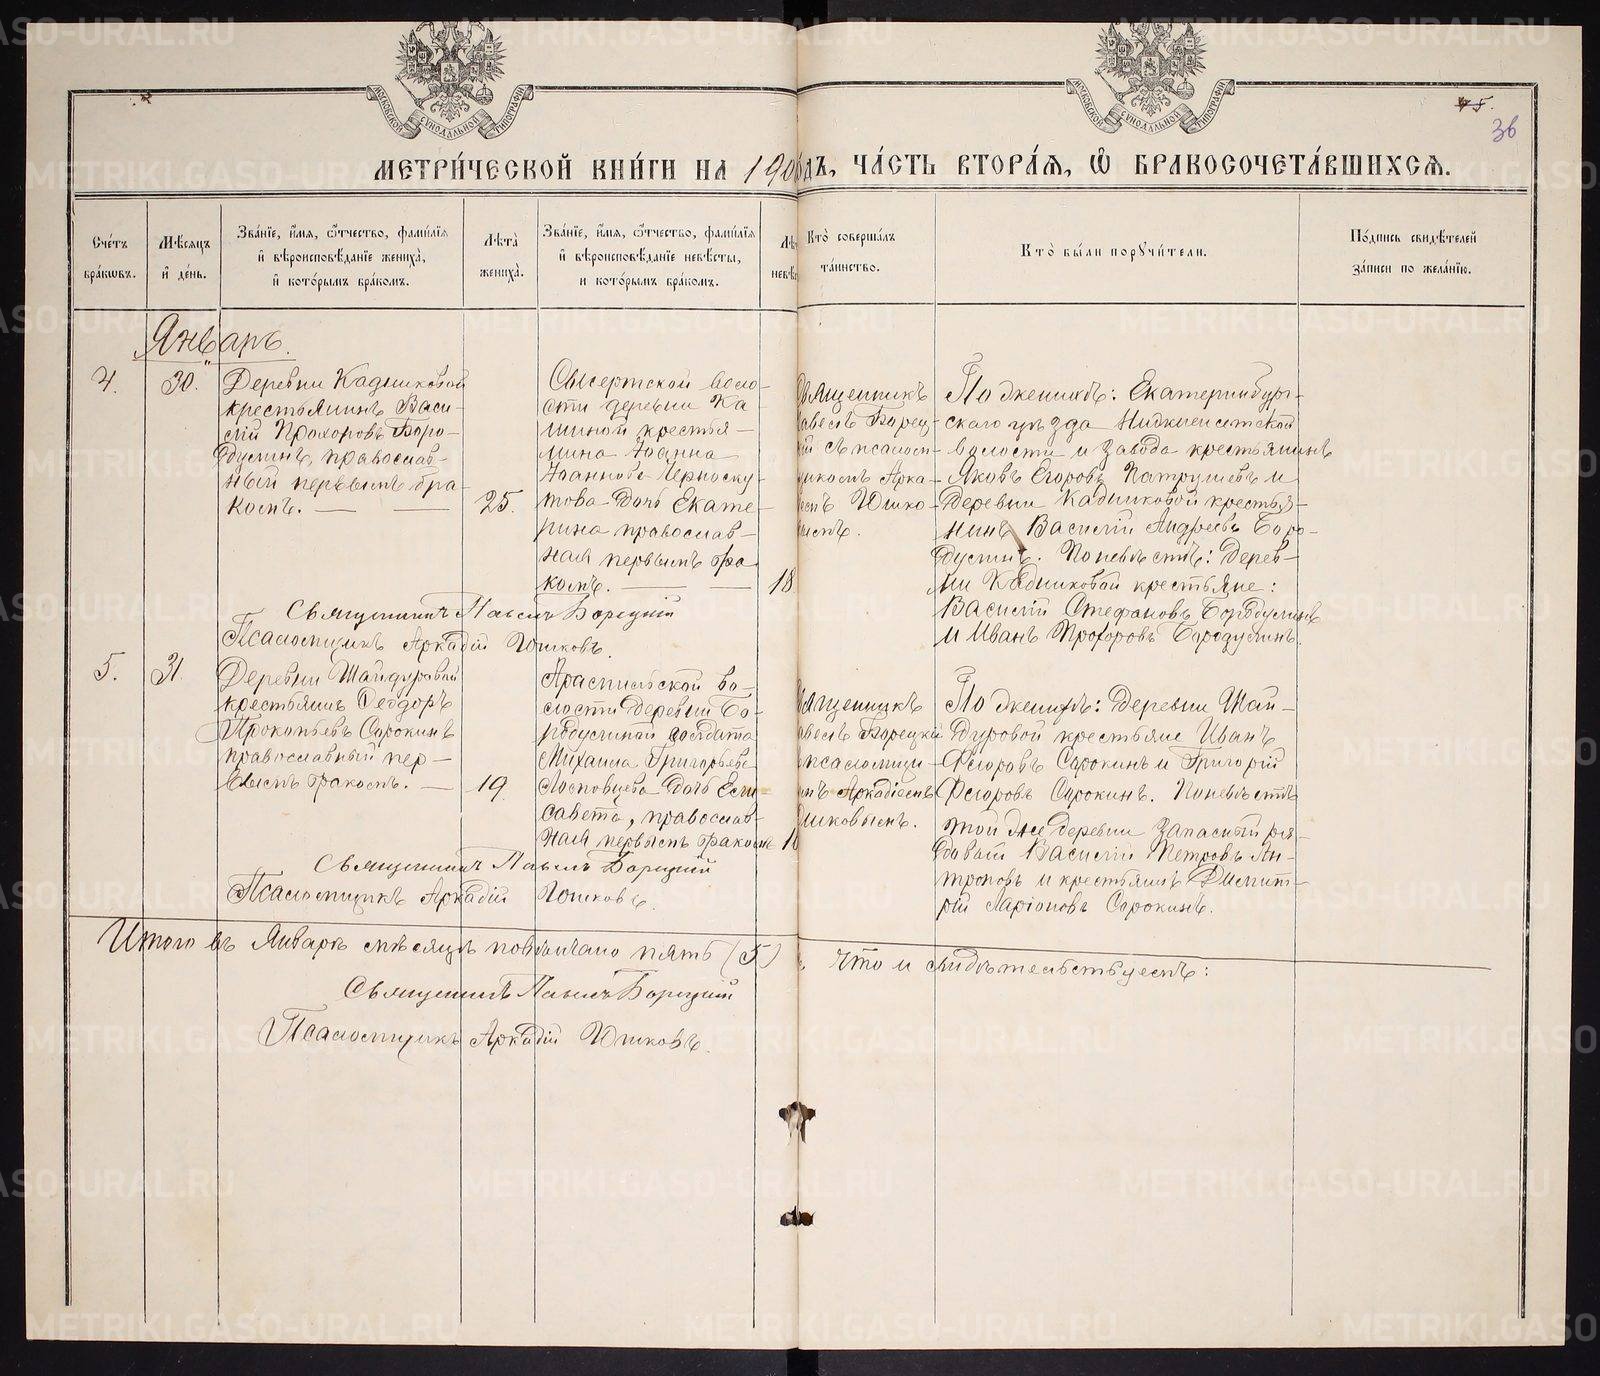 МЕТРИ́ЧЕСКОЙ КНИ́ГИ НА 190 ДЪ, ЧА́СТЬ ВТОРА́Я, Ѿ БРАКОСОЧЕТА́ВШИХСЯ.
45.
36
Сче́тъ бра́кѡвъ.
Мѣ́сяцъ и҆ де́нь.
Зва́нїе, и҆́мя, ѻ҆́тчество, фами́лїя и҆ вѣроисповѣ́данїе жениха̀, и҆ кото́рымъ бра́комъ.
Лѣ́та жениха̀.
Зва́нїе, и҆́мя, ѻ҆́тчество, фами́лїя и҆ вѣроисповѣ́данїе невѣ́сты, и кото́рымъ бра́комъ.
Кто̀ соверша́лъ та́инство.
Кто̀ бы́ли порꙋчи́тели.
По́дпись свидѣ́телей за́писи по жела́нїю.
Январь.
4.
30.
Деревни Кадниковой
крестьянинъ Васи-
лій Прохоровъ Боро-
дулинъ, православ-
ный первымъ бра-
комъ.
25.
Сысертской воло-
сти деревни Ка-
шиной крестья-
нина Іоанна
Іоаннова Черноску-
това дочь Екате-
рина православ-
ная первымъ бра
комъ.
18
Священникъ
Павелъ Борец-
кій съ псалом-
щикомъ Арка-
діемъ Юшко-
вымъ.
По женихѣ: Екатеринбург-
скаго уѣзда Нижнеисетской
волости и завода крестьянинъ
Яковъ Егоровъ Патрушевъ и
деревни Кадниковой крестья-
нинъ Василій Андреевъ Боро-
дулинъ. По невѣстѣ: дерев-
ни Кадниковой крестьяне:
Василій Стефановъ Бородулинъ
и Иванъ Прохоровъ Бородулинъ.
Священникъ Павелъ Борецкій
Псаломщикъ Аркадій Юшковъ.
5.
31.
Деревни Шайдуровой
крестьянинъ Ѳеодоръ
Прокопьевъ Сорокинъ
православный пер-
вымъ бракомъ.
19
Арамильской во-
лости деревни Бо-
родулиной солдата
Михаила Григорьева
дочь Ели-
савета, православ-
ная первымъ бракомъ
Священникъ
Павелъ Борецкій
псаломщи-
комъ Аркадіемъ
Юшковымъ.
По женихѣ: деревни Шай-
дуровой крестьяне Иванъ
Ѳедоровъ Сорокинъ и Григорій
Ѳедоровъ Сорокинъ. По невѣстѣ
той же деревни запасный ря-
довой Василій Петровъ Ан-
троповъ и крестьянинъ Димит-
рій Ларіоновъ Сорокинъ.
Священникъ Павелъ Борецкій
Псаломщикъ Аркадій Юшковъ.
Итого въ Январѣ мѣсяцѣ повѣнчано пять (5) что и свидѣтельствуемъ:
Священникъ Павелъ Борецкій
Псаломщикъ Аркадій Юшковъ.